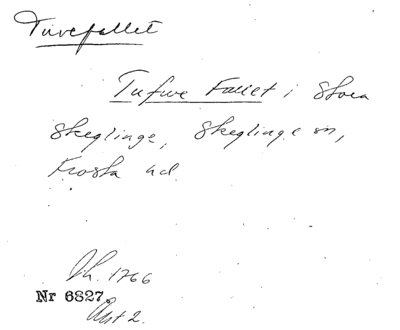 Tuvefallet
Tufwe Fallet i Stora
Skeglinge, Skeglinge sn,
Frosta hd.
Sk. 1766
Nr 6827
Akt 2.